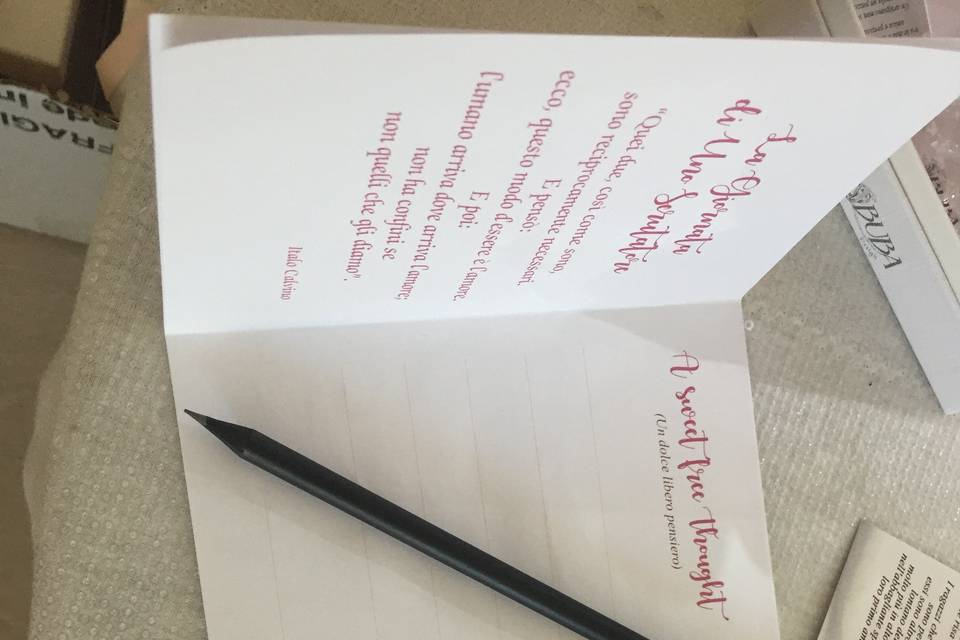 La Giornata
di Uno Scrutatore
"Quei due, così come sono,
sono reciprocamente necessari.
E pensò:
ecco, questo modo d'essere è l'amore.
E poi:
l'umano arriva dove arriva l'amore;
non ha confini se
non quelli che gli diamo".
Italo Calvino
A sweet free thought
(Un dolce libero pensiero)
BUBA
FRAGI
ade in
I ragazzi ch
essi sono
lontano
molto più in al
nell'abbagliante
loro primo am